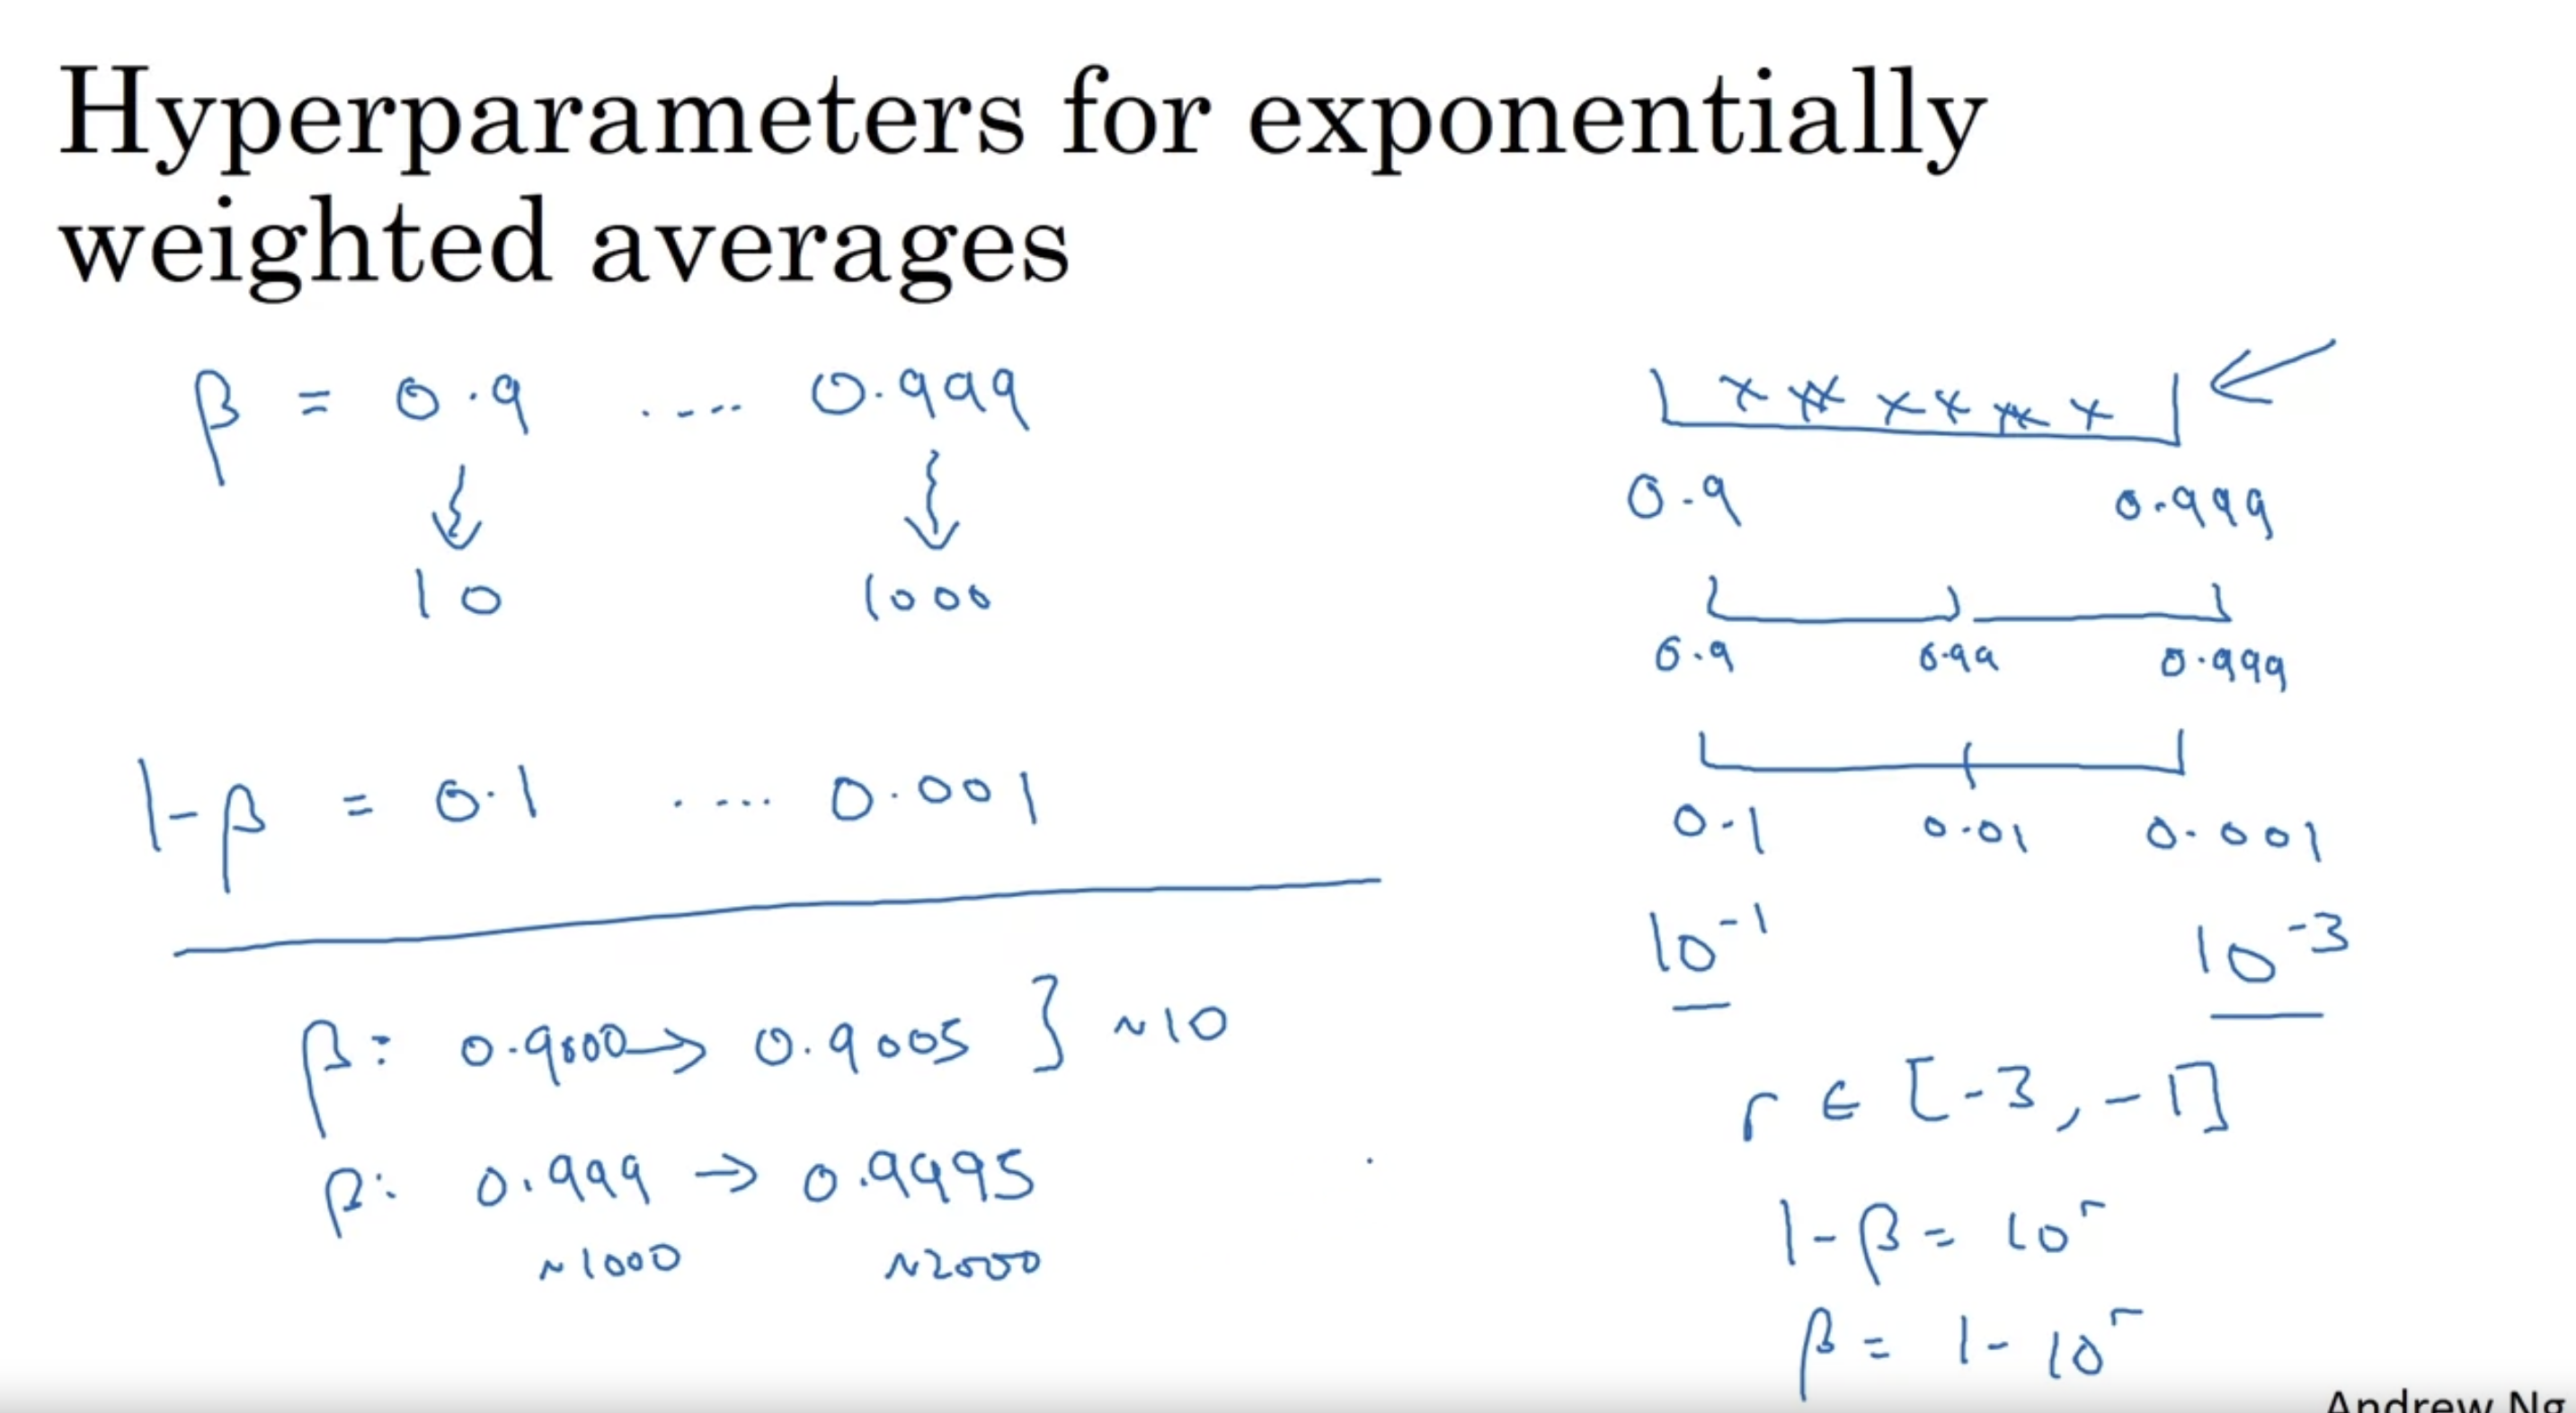 Hyperparameters for exponentially
weighted averages
β = 0.9 .... 0.999
10 1000
1-β = 0.1 .... 0.001
β: 0.9000 → 0.9005 } ~10
β: 0.999 → 0.9995
~1000 ~2000
0.9 0.999
0.9 0.99 0.999
0.1 0.01 0.001
10⁻¹ 10⁻³
r ∈ [-3, -1]
1-β = 10ʳ
β = 1-10ʳ
Andrew Ng